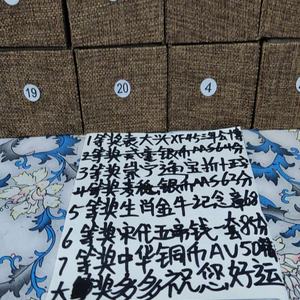 19
20
4
1等奖袁大头XF45三年
2等奖 银币MS64分
3等奖崇宁通宝折十
4等奖 银币MS62分
5等奖生肖金牛纪念 68
6等奖宋代五帝钱一套8份
7等奖中华铜币AU50
大 奖多多祝您好运